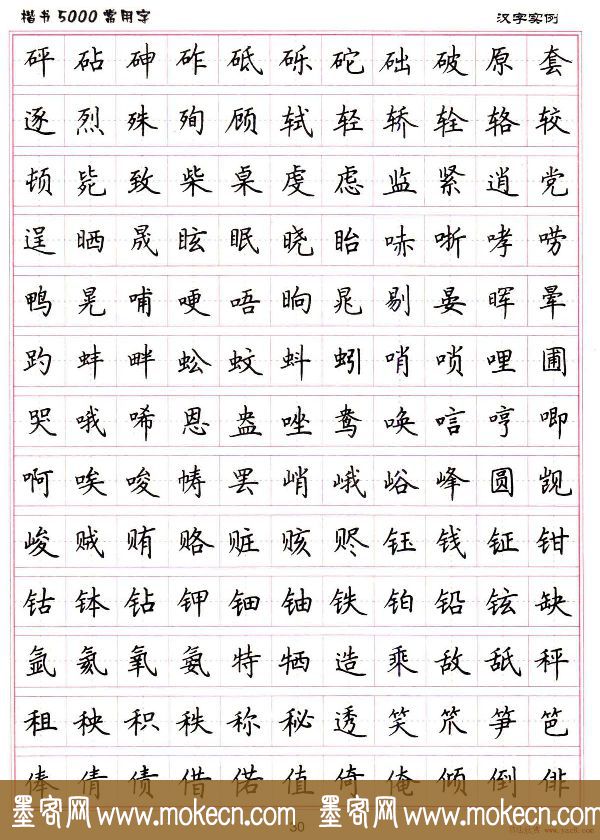 楷书5000常用字 汉字实例
砰 砧 砷 砟 砥 砾 砣 础 破 原 套
逐 烈 殊 殉 顾 轼 轻 轿 轾 辂 较
顿 毙 致 柴 桌 虔 虑 监 紧 逍 党
逞 晒 晟 眩 眠 晓 眙 哧 哳 哮 唠
鸭 晃 哺 哽 唔 晌 晁 剔 晏 晖 晕
趵 蚌 畔 蚣 蚊 蚪 蚓 哨 唢 哩 圃
哭 哦 唏 恩 盎 唑 鸯 唤 唁 哼 唧
啊 唉 唆 帱 罢 峭 峨 峪 峰 圆 觊
峻 贼 贿 赂 赃 赅 赆 钰 钱 钲 钳
钴 钵 钻 钾 钿 铀 铁 铂 铅 铉 缺
氩 氦 氧 氨 特 牺 造 乘 敌 舐 秤
租 秧 积 秩 称 秘 透 笑 笊 笋 笆
俸 倩 债 借 偌 值 倚 俺 倾 倒 俳
墨客网 www.mokecn.com 墨客网 www.mokecn.com
30